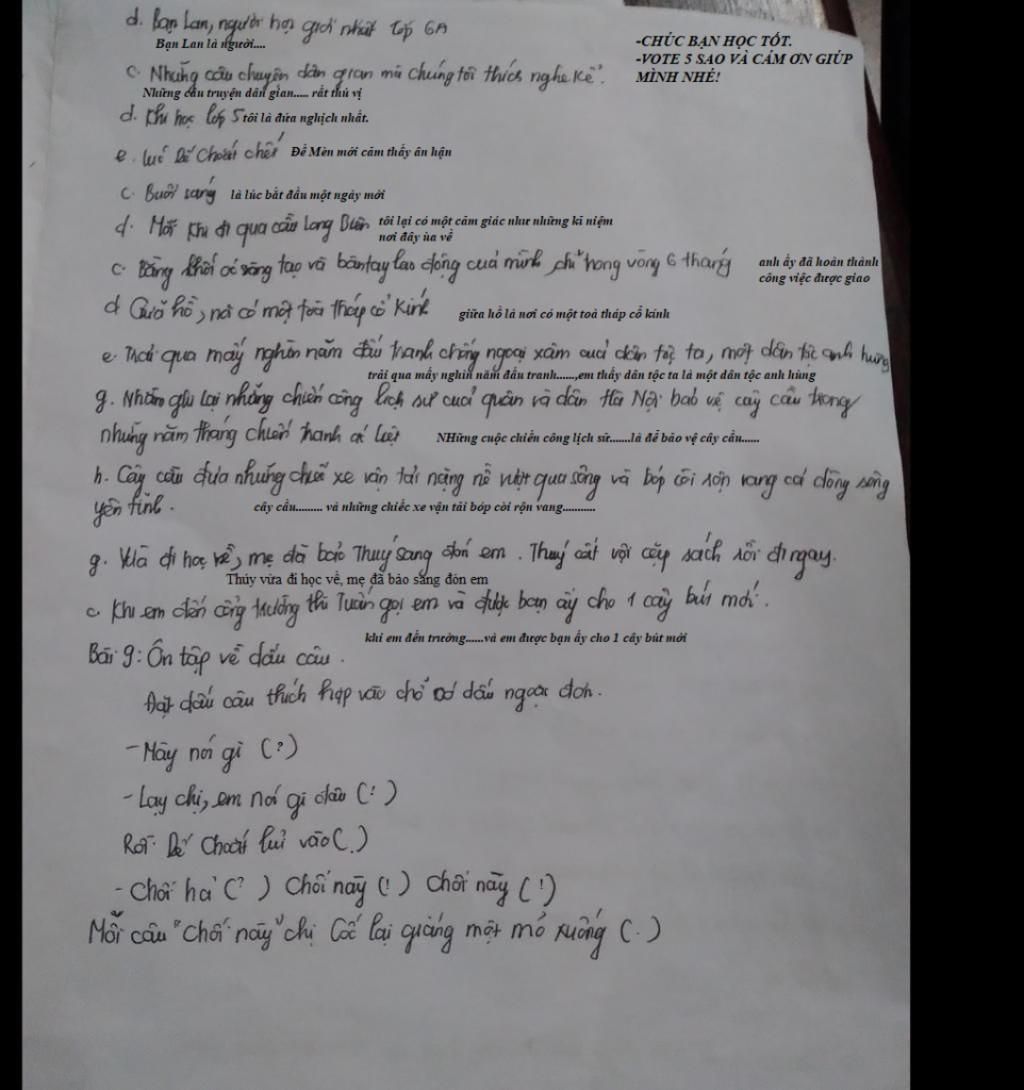 d. Bạn Lan, người học giỏi nhất lớp 6A
Bạn Lan là người....
-CHÚC BẠN HỌC TỐT.
-VOTE 5 SAO VÀ CẢM ƠN GIÚP
MÌNH NHÉ!
c. Những câu chuyện dân gian mà chúng tôi thích nghe kể.
Những câu truyện dân gian..... rất thú vị
d. Khi học lớp 5 tôi là đứa nghịch nhất.
e. Lúc Dế Choắt chết Dế Mèn mới cảm thấy ân hận
c. Buổi sáng là lúc bắt đầu một ngày mới
d. Mỗi khi đi qua cầu Long Biên tôi lại có một cảm giác như những kỉ niệm
nơi đây ùa về
c. Bằng khối óc sáng tạo và bàn tay lao động của mình, chỉ trong vòng 6 tháng anh ấy đã hoàn thành
công việc được giao
d. Giữa hồ, nơi có một toà tháp cổ kính giữa hồ là nơi có một toà tháp cổ kính
e. Trải qua mấy nghìn năm đấu tranh chống ngoại xâm của dân tộc ta, một dân tộc anh hùng
trải qua mấy nghìn năm đấu tranh......,em thấy dân tộc ta là một dân tộc anh hùng
g. Nhằm ghi lại những chiến công lịch sử của quân và dân Hà Nội bảo vệ cây cầu trong
những năm tháng chiến tranh ác liệt NHững cuộc chiến công lịch sử.......là để bảo vệ cây cầu......
h. Cây cầu đưa những chiếc xe vận tải nặng nề vượt qua sông và bóp còi rộn vang cả dòng sông
yên tĩnh. cây cầu......... và những chiếc xe vận tải bóp còi rộn vang...........
g. Vừa đi học về, mẹ đã bảo Thuý sang đón em. Thuý cất vội cặp sách rồi đi ngay.
Thúy vừa đi học về, mẹ đã bảo sang đón em
c. Khi em đến cổng trường thì Tuấn gọi em và được bạn ấy cho 1 cây bút mới.
khi em đến trường......và em được bạn ấy cho 1 cây bút mới
Bài 9: Ôn tập về dấu câu.
Đặt dấu câu thích hợp vào chỗ có dấu ngoặc đơn.
- Mày nói gì (?)
- Lạy chị, em nói gì đâu (!)
Rồi Dế Choắt lủi vào (.)
- Chối hả (?) Chối này (!) Chối này (!)
Mỗi câu "Chối này" chị Cốc lại giáng một mỏ xuống (.)